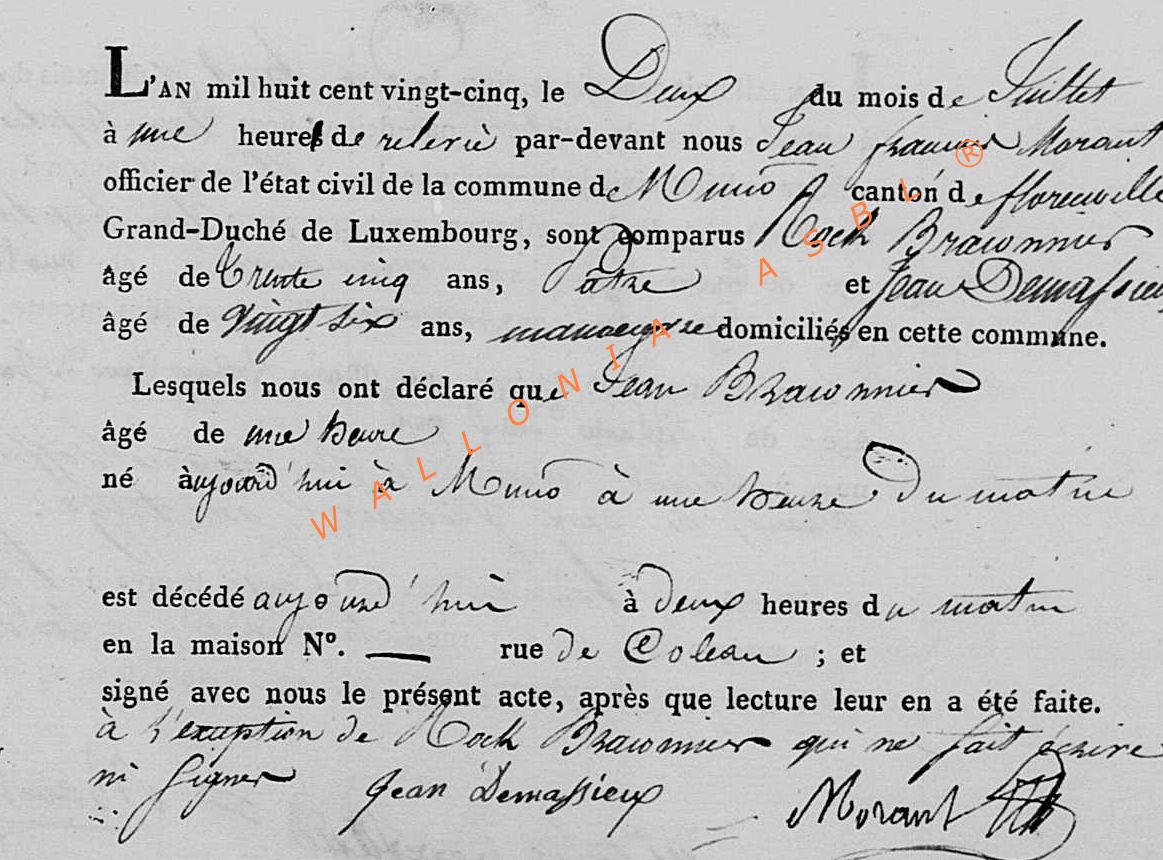 L'AN mil huit cent vingt-cinq, le Deux du mois de Juillet
à une heure de relevé par-devant nous Jean françois Morant
officier de l'état civil de la commune de Muno canton de florenville
Grand-Duché de Luxembourg, sont comparus Rock Brawonnier
âgé de Trente cinq ans, pâtre et Jean Demassieux
âgé de vingt six ans, manoeuvre domiciliés en cette commune.
Lesquels nous ont déclaré que Jean Brawonnier
âgé de une heure
né aujourd'hui à Muno à une heure du matin
est décédé aujourd'hui à deux heures du matin
en la maison N°. — rue de ; et
signé avec nous le présent acte, après que lecture leur en a été faite.
à l'exception de Rock Brawonnier qui ne sait écrire
ni signer Jean Demassieux Morant
WALLONIA ASBL ®